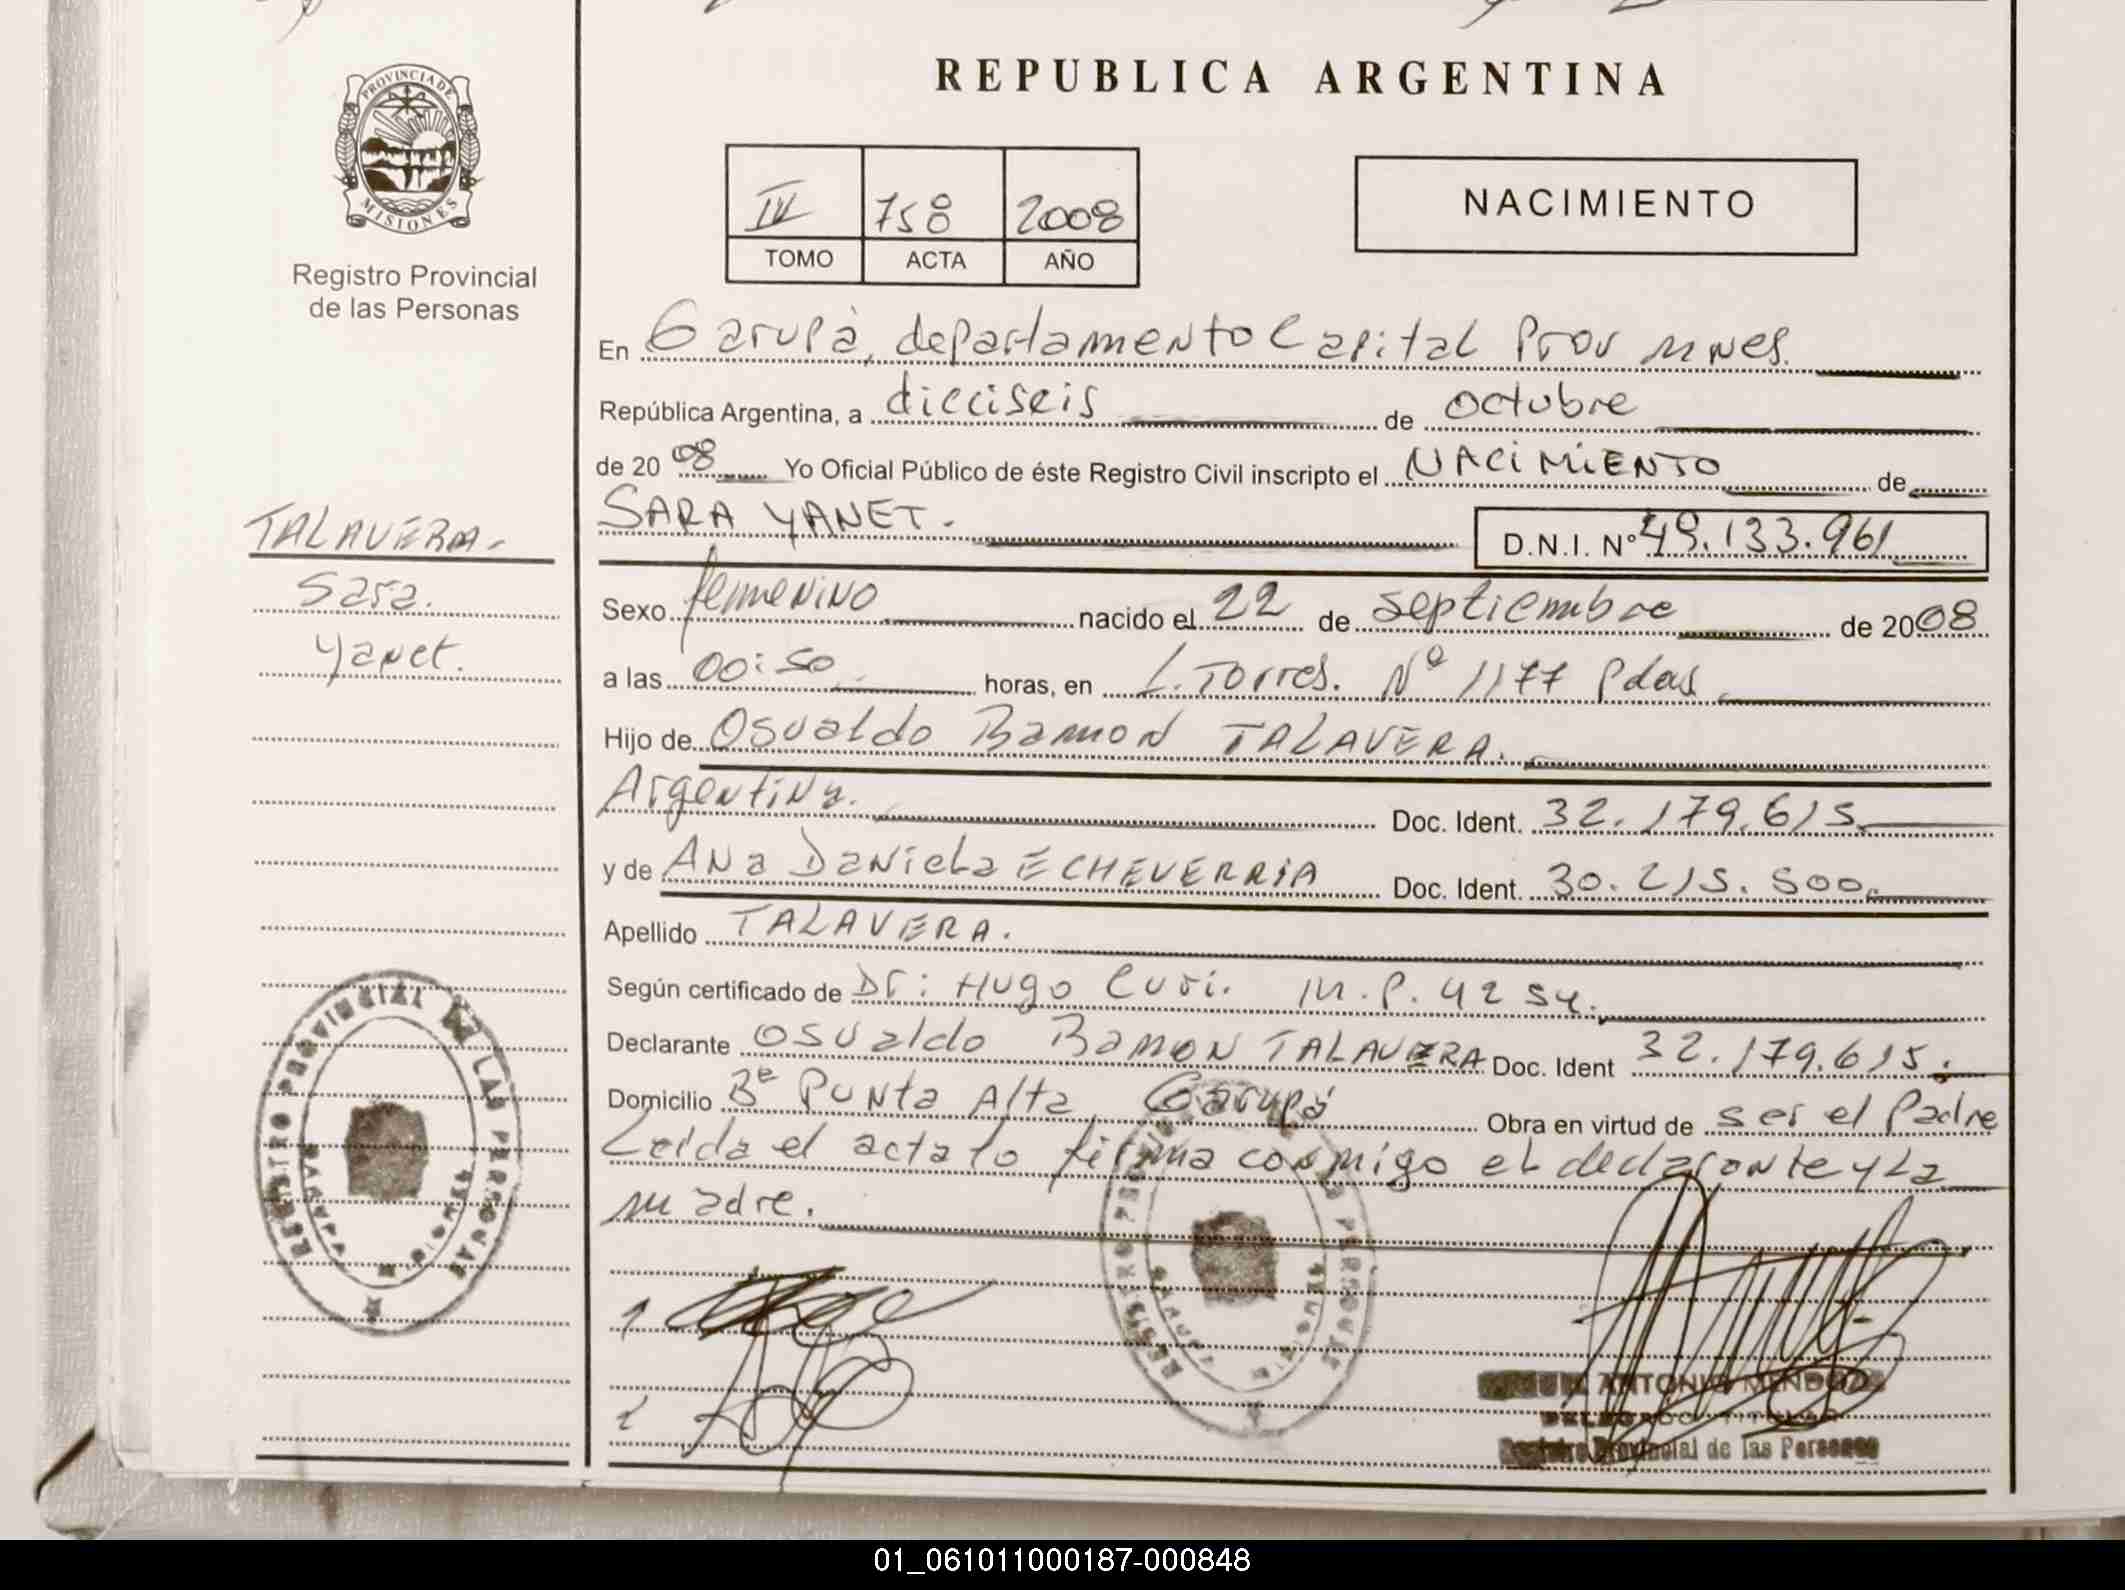 REPUBLICA ARGENTINA
PROVINCIA DE
MISIONES
Registro Provincial
de las Personas
IV 758 2008
TOMO ACTA AÑO
NACIMIENTO
En Garupà, departamento Capital Prov Mnes.
República Argentina, a dieciseis de octubre
de 2008 Yo Oficial Público de éste Registro Civil inscripto el NACIMIENTO de
SARA YANET. D.N.I. Nº 49.133.961
TALAVERA.
Sara.
Yanet.
Sexo femenino nacido el 22 de septiembre de 2008
a las 00:50 horas, en L. Torres. Nº 1177 Pdas.
Hijo de Osvaldo Ramon TALAVERA.
Argentina. Doc. Ident. 32.179.615
y de Ana Daniela ECHEVERRIA Doc. Ident. 30.215.500
Apellido TALAVERA.
Según certificado de Dr: Hugo Curi. M.P. 4254.
Declarante Osvaldo Ramon TALAVERA Doc. Ident 32.179.615.
Domicilio Bº Punta Alta, Garupá Obra en virtud de ser el Padre
Leida el acta lo firma conmigo el declarante y La
madre.
REGISTRO PROVINCIAL DE LAS PERSONAS
1
2
ANTONIO MENDOZA
DELEGADO TITULAR
Registro Provincial de las Personas
01_061011000187-000848